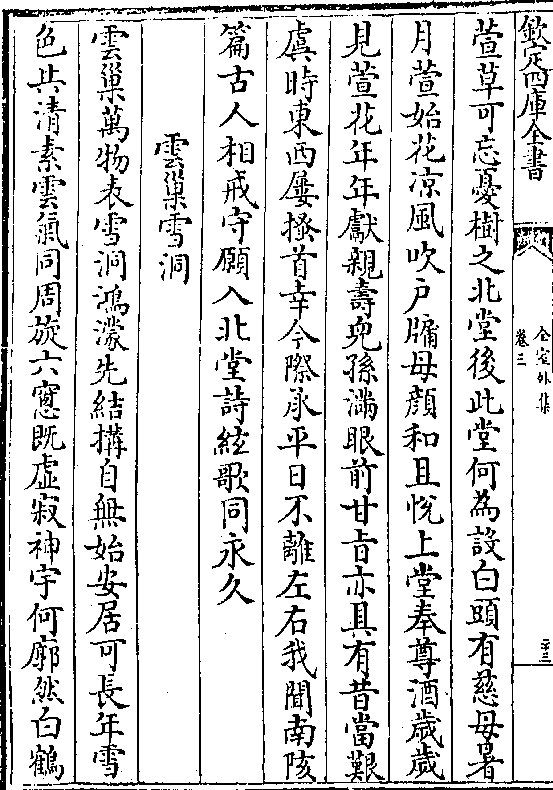 欽定四庫全書
全室外集
卷三
二十三
萱草可忘憂樹之北堂後此堂何為設白頭有慈母暑
月萱始花凉風吹户牖母顔和且悦上堂奉尊酒歲歲
見萱花年年獻親壽兒孫滿眼前甘旨亦具有昔當艱
虞時東西屢搔首幸今際承平日不離左右我聞南陔
篇古人相戒守願入北堂詩絃歌同永久
雲巢雪洞
雲巢萬物表雪洞鴻濛先結搆自無始安居可長年雪
色共清素雲氣同周旋六窓既虛寂神宇何廓然白鶴